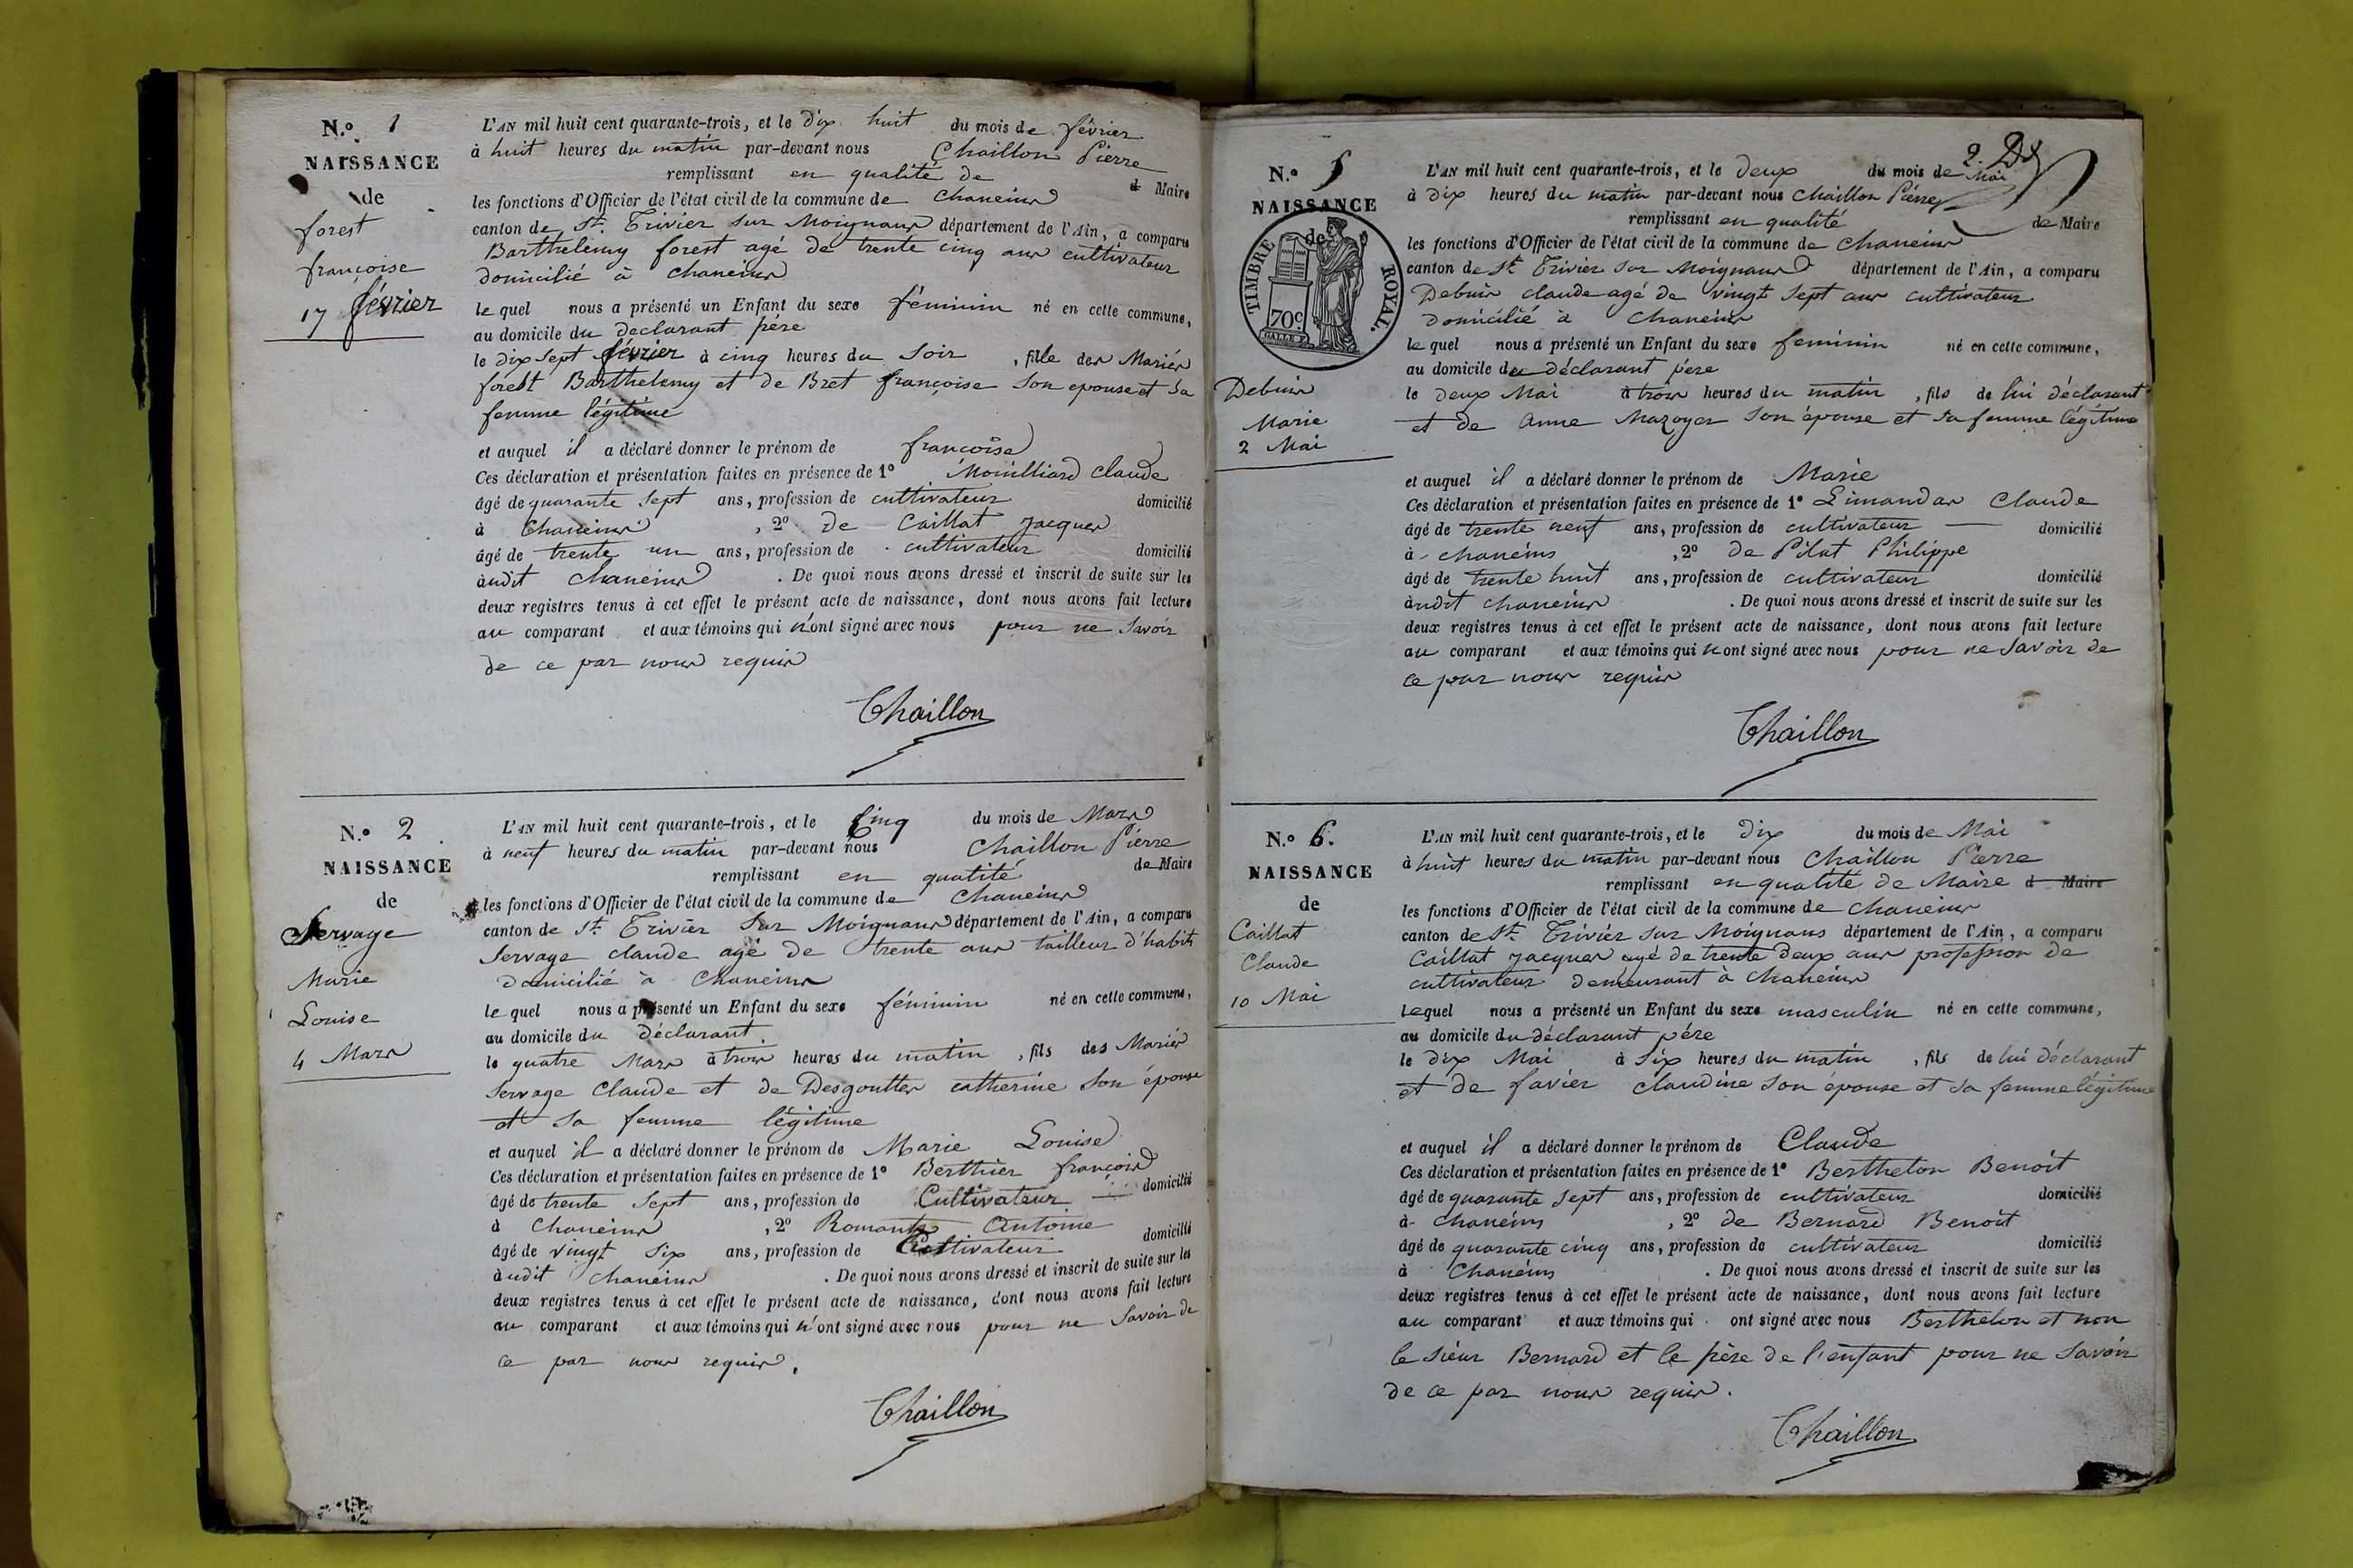 N.º 1
NAISSANCE
de
forest
françoise
17 février
L'AN mil huit cent quarante-trois, et le dix huit du mois de février
à huit heures du matin par-devant nous Chaillon Pierre
remplissant en qualité de Maire
les fonctions d'Officier de l'état civil de la commune de chaneins
canton de St. Trivier sur Moignans département de l'Ain, a comparu
Barthelemy forest agé de trente cinq ans cultivateur
domicilié à chaneins
le quel nous a présenté un Enfant du sexe féminin né en cette commune,
au domicile du declarant père
le dix sept février à cinq heures du soir, fille des Mariés
forest Barthelemy et de Bret françoise son epouse et sa
femme légitime
et auquel il a déclaré donner le prénom de françoise
Ces déclaration et présentation faites en présence de 1º Mouilliard claude
âgé de quarante sept ans, profession de cultivateur domicilié
à Chaneins, 2º de Caillat jacques
âgé de trente un ans, profession de cultivateur domicilié
àudit chaneins. De quoi nous avons dressé et inscrit de suite sur les
deux registres tenus à cet effet le présent acte de naissance, dont nous avons fait lecture
au comparant et aux témoins qui n'ont signé avec nous pour ne savoir
de ce par nous requis
Chaillon
N.º 2
NAISSANCE
de
Servage
Marie
Louise
4 Mars
L'AN mil huit cent quarante-trois, et le Cinq du mois de Mars
à neuf heures du matin par-devant nous Chaillon Pierre
remplissant en qualité de Maire
les fonctions d'Officier de l'état civil de la commune de Chaneins
canton de St. Trivier Sur Moignans département de l'Ain, a comparu
Servage claude agé de trente ans tailleur d'habits
domicilié à Chaneins
le quel nous a présenté un Enfant du sexe féminin né en cette commune,
au domicile du déclarant
le quatre Mars à trois heures du matin, fils des Mariés
Servage Claude et de Desgouttes catherine son épouse
et sa femme légitime
et auquel il a déclaré donner le prénom de Marie Louise
Ces déclaration et présentation faites en présence de 1º Berthier françois
âgé de trente sept ans, profession de Cultivateur domicilié
à Chaneins, 2º Romant Antoine
âgé de vingt six ans, profession de Cultivateur domicilié
àudit chaneins. De quoi nous avons dressé et inscrit de suite sur les
deux registres tenus à cet effet le présent acte de naissance, dont nous avons fait lecture
au comparant et aux témoins qui n'ont signé avec nous pour ne savoir de
ce par nous requis.
Chaillon
2.
N.º 5
NAISSANCE
de
TIMBRE ROYAL.
70c
Debuis
Marie
2 Mai
L'AN mil huit cent quarante-trois, et le deux du mois de Mai
à dix heures du matin par-devant nous Chaillon Pierre
remplissant en qualité de Maire
les fonctions d'Officier de l'état civil de la commune de Chaneins
canton de St. Trivier sur Moignans département de l'Ain, a comparu
Debuis claude agé de vingt sept ans cultivateur
domicilié à Chaneins
le quel nous a présenté un Enfant du sexe feminin né en cette commune,
au domicile du déclarant père
le deux Mai à trois heures du matin, fils de lui déclarant
et de Anne Mazoyer son épouse et sa femme légitime
et auquel il a déclaré donner le prénom de Marie
Ces déclaration et présentation faites en présence de 1º Limandas Claude
âgé de trente neuf ans, profession de cultivateur domicilié
à chaneins, 2º de Pilat Philippe
âgé de trente huit ans, profession de cultivateur domicilié
àudit chaneins. De quoi nous avons dressé et inscrit de suite sur les
deux registres tenus à cet effet le présent acte de naissance, dont nous avons fait lecture
au comparant et aux témoins qui n'ont signé avec nous pour ne savoir de
ce par nous requis
Chaillon
N.º 6.
NAISSANCE
de
Caillat
Claude
10 Mai
L'AN mil huit cent quarante-trois, et le dix du mois de Mai
à huit heures du matin par-devant nous Chaillon Pierre
remplissant en qualité de Maire d Maire
les fonctions d'Officier de l'état civil de la commune de chaneins
canton de St. Trivier sur Moignans département de l'Ain, a comparu
Caillat jacques agé de trente deux ans profession de
cultivateur demeurant à Chaneins
Lequel nous a présenté un Enfant du sexe masculin né en cette commune,
au domicile du déclarant père
le dix Mai à six heures du matin, fils de lui déclarant
et de favier claudine son épouse et sa femme légitime
et auquel il a déclaré donner le prénom de Claude
Ces déclaration et présentation faites en présence de 1º Berthelon Benoit
âgé de quarante sept ans, profession de cultivateur domicilié
à chaneins, 2º de Bernard Benoit
âgé de quarante cinq ans, profession de cultivateur domicilié
à chaneins. De quoi nous avons dressé et inscrit de suite sur les
deux registres tenus à cet effet le présent acte de naissance, dont nous avons fait lecture
au comparant et aux témoins qui ont signé avec nous Berthelon et non
le sieur Bernard et le père de l'enfant pour ne savoir
de ce par nous requis.
Chaillon